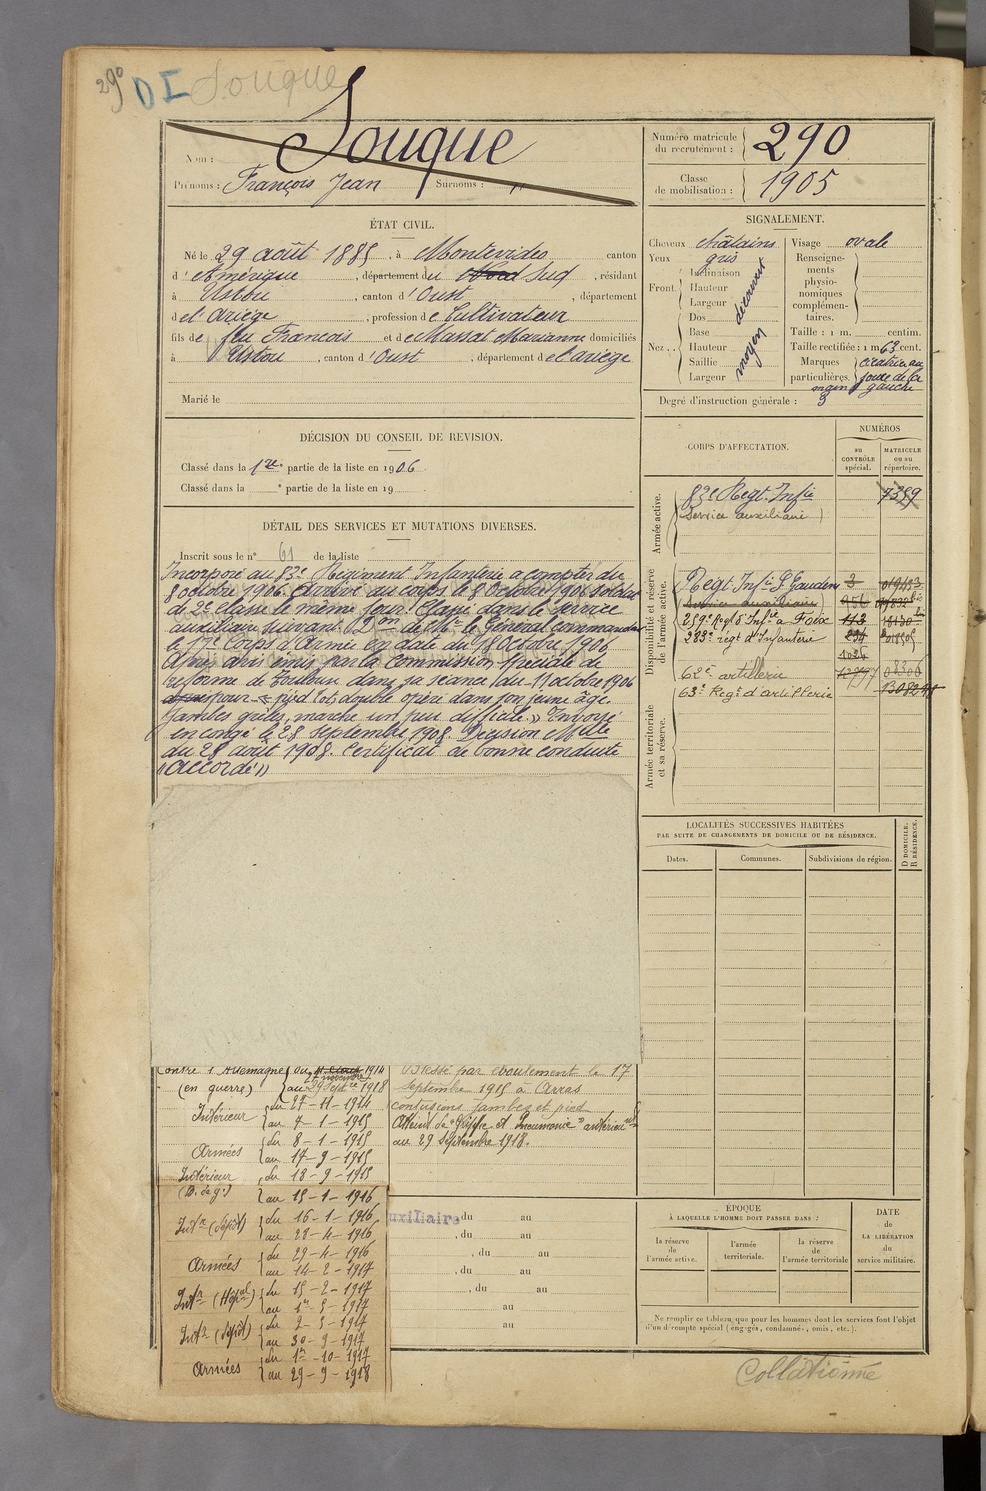 290 D I Souque
Nom : Souque
Prénoms : François Jean Surnoms : "
Numéro matricule du recrutement : 290
Classe de mobilisation : 1905
ÉTAT CIVIL.
Né le 29 août 1885, à Montevideo canton
d'Amérique, département du Nord Sud, résidant
à Ustou, canton d'Oust, département
de l'Ariège, profession de Cultivateur
fils de feu François et de Massat Marianne domiciliés
à Ustou, canton d'Oust, département de l'ariège
Marié le
SIGNALEMENT.
Cheveux châtains
Yeux gris
Front. Inclinaison
Hauteur
Largeur
découvert
Nez.. Dos
Base
Hauteur
Saillie
Largeur
moyen
Visage ovale
Renseignements physionomiques complémentaires.
Taille : 1 m. centim.
Taille rectifiée : 1 m 63 cent.
Marques particulières. cicatrice au
de la
main gauche
Degré d'instruction générale : 3
DÉCISION DU CONSEIL DE REVISION.
Classé dans la 1re partie de la liste en 1906
Classé dans la e partie de la liste en 19
DÉTAIL DES SERVICES ET MUTATIONS DIVERSES.
Inscrit sous le n° 61 de la liste
Incorporé au 83e Régiment Infanterie a compter du
8 octobre 1906. Arrivé au corps le 8 Octobre 1906 soldat
de 2e classe le même jour. Classé dans le service
auxiliaire suivant Don de Mr le Général commandant
le 17e Corps d'Armée en date du 18 Octobre 1906
Après avis émis par la commission Spéciale de
réforme de Toulouse dans sa séance du 11 octobre 1906
pour « pied bot, double opéré dans son jeune âge.
Jambes grêles, marche un peu difficile. » Envoyé
en congé le 28 septembre 1908. Décision Mlle
du 28 août 1908. Certificat de bonne conduite
« accordé »
CORPS D'AFFECTATION.
NUMÉROS
au CONTRÔLE spécial.
MATRICULE ou au répertoire.
Armée active.
83e Regt. Infie 7359
(Service auxiliaire)
Disponibilité et réserve de l'armée active.
Regt Infie St Gaudens 3 019403
(Service auxiliaire)
259e Regt d'Infie à Foix 113
383e régt d'Infanterie
1026
62e artillerie 08306
63e Regt d'artillerie
Armée territoriale et sa réserve.
LOCALITÉS SUCCESSIVES HABITÉES
PAR SUITE DE CHANGEMENTS DE DOMICILE OU DE RÉSIDENCE.
Dates. Communes. Subdivisions de région.
D DOMICILE. R RÉSIDENCE.
contre l'Allemagne du 27 novembre 1914
(en guerre) au 29 Septre 1918
Intérieur du 27-11-1914
au 7-1-1915
Armées du 8-1-1915
au 17-9-1915
Intérieur du 18-9-1915
(B. de g.) au 15-1-1916
Intr (dépôt) du 16-1-1916
au 28-4-1916
Armées du 29-4-1916
au 14-2-1917
Intr (Hôpal) du 15-2-1917
au 1er-5-1917
Intr (dépôt) du 2-5-1917
au 30-9-1917
Armées du 1er-10-1917
au 29-9-1918
Blessé par éboulement le 17
septembre 1915 à Arras
contusions jambes et pied
Atteint de "Grippe et Pneumonie"
au 29 Septembre 1918.
uxiliaire du au
, du au
, du au
, du au
, du au
au
au
ÉPOQUE
À LAQUELLE L'HOMME DOIT PASSER DANS :
la réserve de l'armée active.
l'armée territoriale.
la réserve de l'armée territoriale
DATE DE LA LIBÉRATION du service militaire.
Ne remplir ce tableau que pour les hommes dont les services font l'objet
d'un décompte spécial (engagés, condamnés, omis, etc.).
Collationné